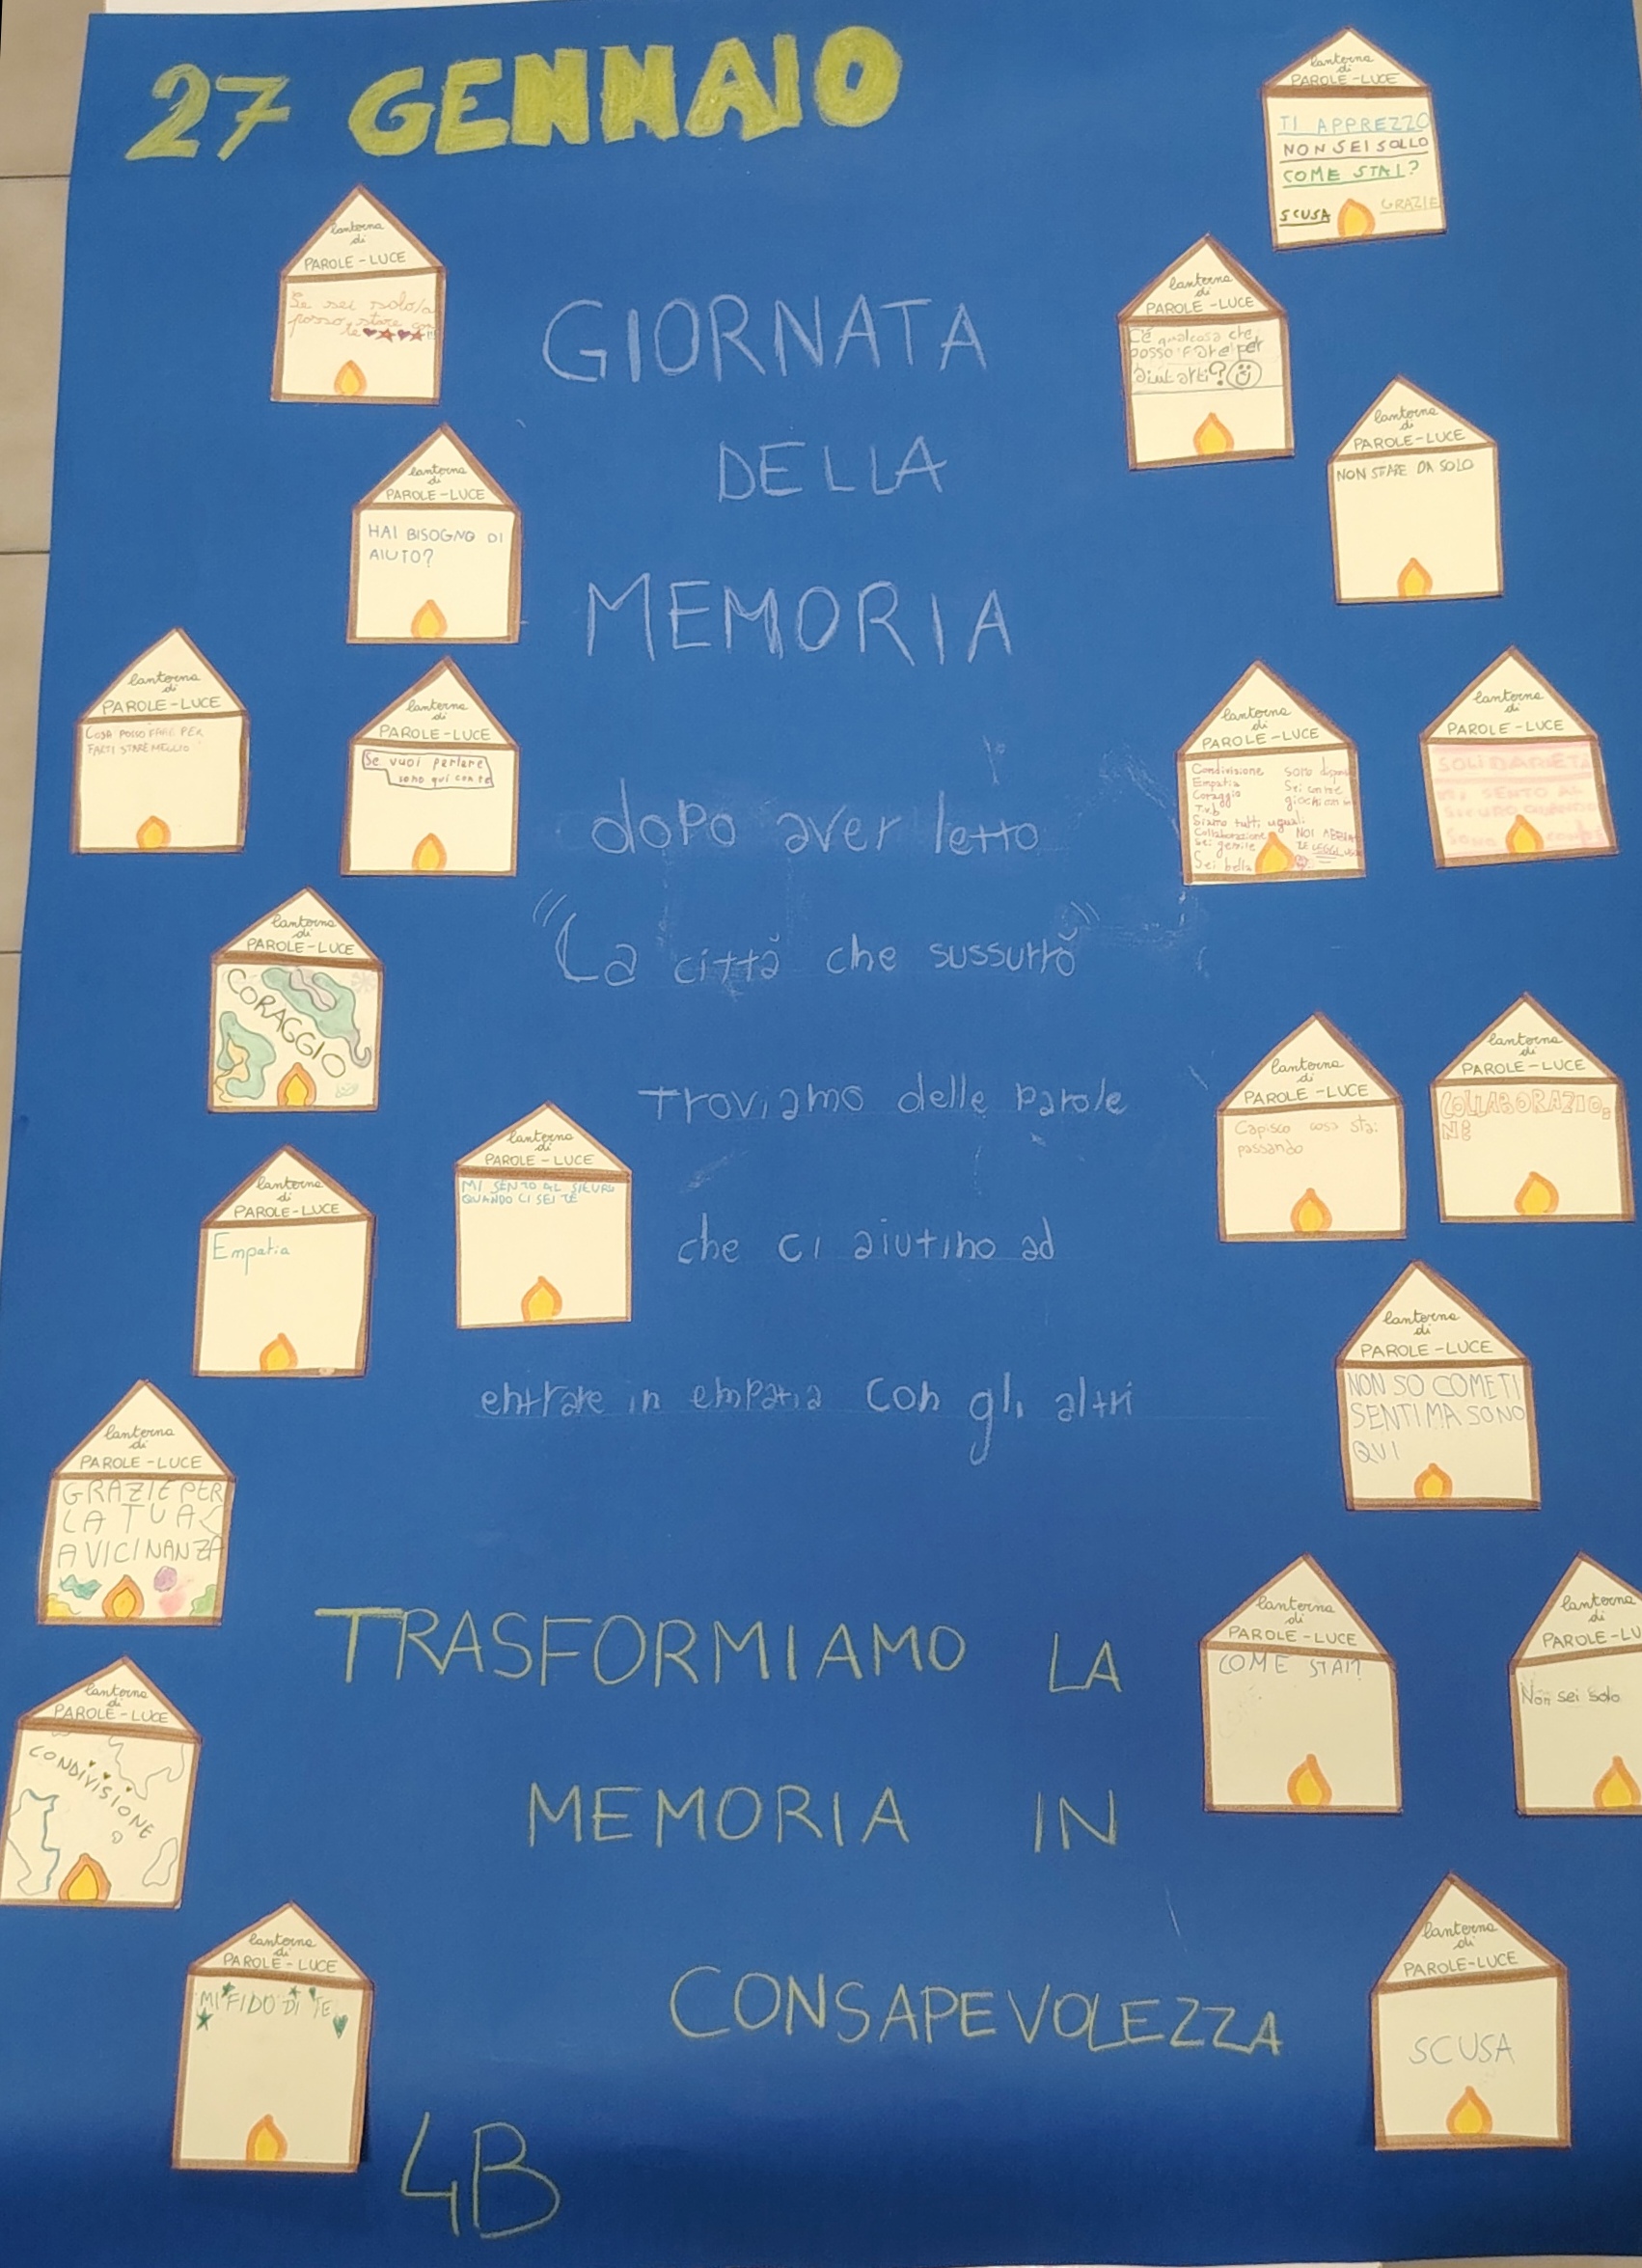 27 GENNAIO
GIORNATA
DELLA
MEMORIA
dopo aver letto
"La città che sussurrò"
troviamo delle parole
che ci aiutino ad
entrare in empatia con gli altri
TRASFORMIAMO LA
MEMORIA IN
CONSAPEVOLEZZA
4B
lanterna
di
PAROLE-LUCE
Se sei solo/a
posso stare con
te
lanterna
di
PAROLE-LUCE
HAI BISOGNO DI
AIUTO?
lanterna
di
PAROLE-LUCE
COSA POSSO FARE PER
FARTI STARE MEGLIO
lanterna
di
PAROLE-LUCE
Se vuoi parlare
sono qui con te
lanterna
di
PAROLE-LUCE
CORAGGIO
lanterna
di
PAROLE-LUCE
MI SENTO AL SICURO
QUANDO CI SEI TE
lanterna
di
PAROLE-LUCE
Empatia
lanterna
di
PAROLE-LUCE
GRAZIE PER
LA TUA
AVICINANZA
lanterna
di
PAROLE-LUCE
CONDIVISIONE
lanterna
di
PAROLE-LUCE
MI FIDO DI TE
lanterna
di
PAROLE-LUCE
TI APPREZZO
NON SEI SOLLO
COME STAI?
SCUSA GRAZIE
lanterna
di
PAROLE-LUCE
C'è qualcosa che
posso fare per
aiutarti?
lanterna
di
PAROLE-LUCE
NON STARE DA SOLO
lanterna
di
PAROLE-LUCE
Condivisione sono
Empatia Sei
Coraggio
T.v.b
Siamo tutti uguali
Collaborazione NOI
Sei gentile
Sei bella
lanterna
di
PAROLE-LUCE
SOLIDARIETÀ
MI SENTO AL
SICURO QUANDO
SONO
lanterna
di
PAROLE-LUCE
Capisco cosa stai
passando
lanterna
di
PAROLE-LUCE
COLLABORAZIO
NE
lanterna
di
PAROLE-LUCE
NON SO COME TI
SENTI MA SONO
QUI
lanterna
di
PAROLE-LUCE
COME STAI?
lanterna
di
PAROLE-LU
Non sei solo
lanterna
di
PAROLE-LUCE
SCUSA